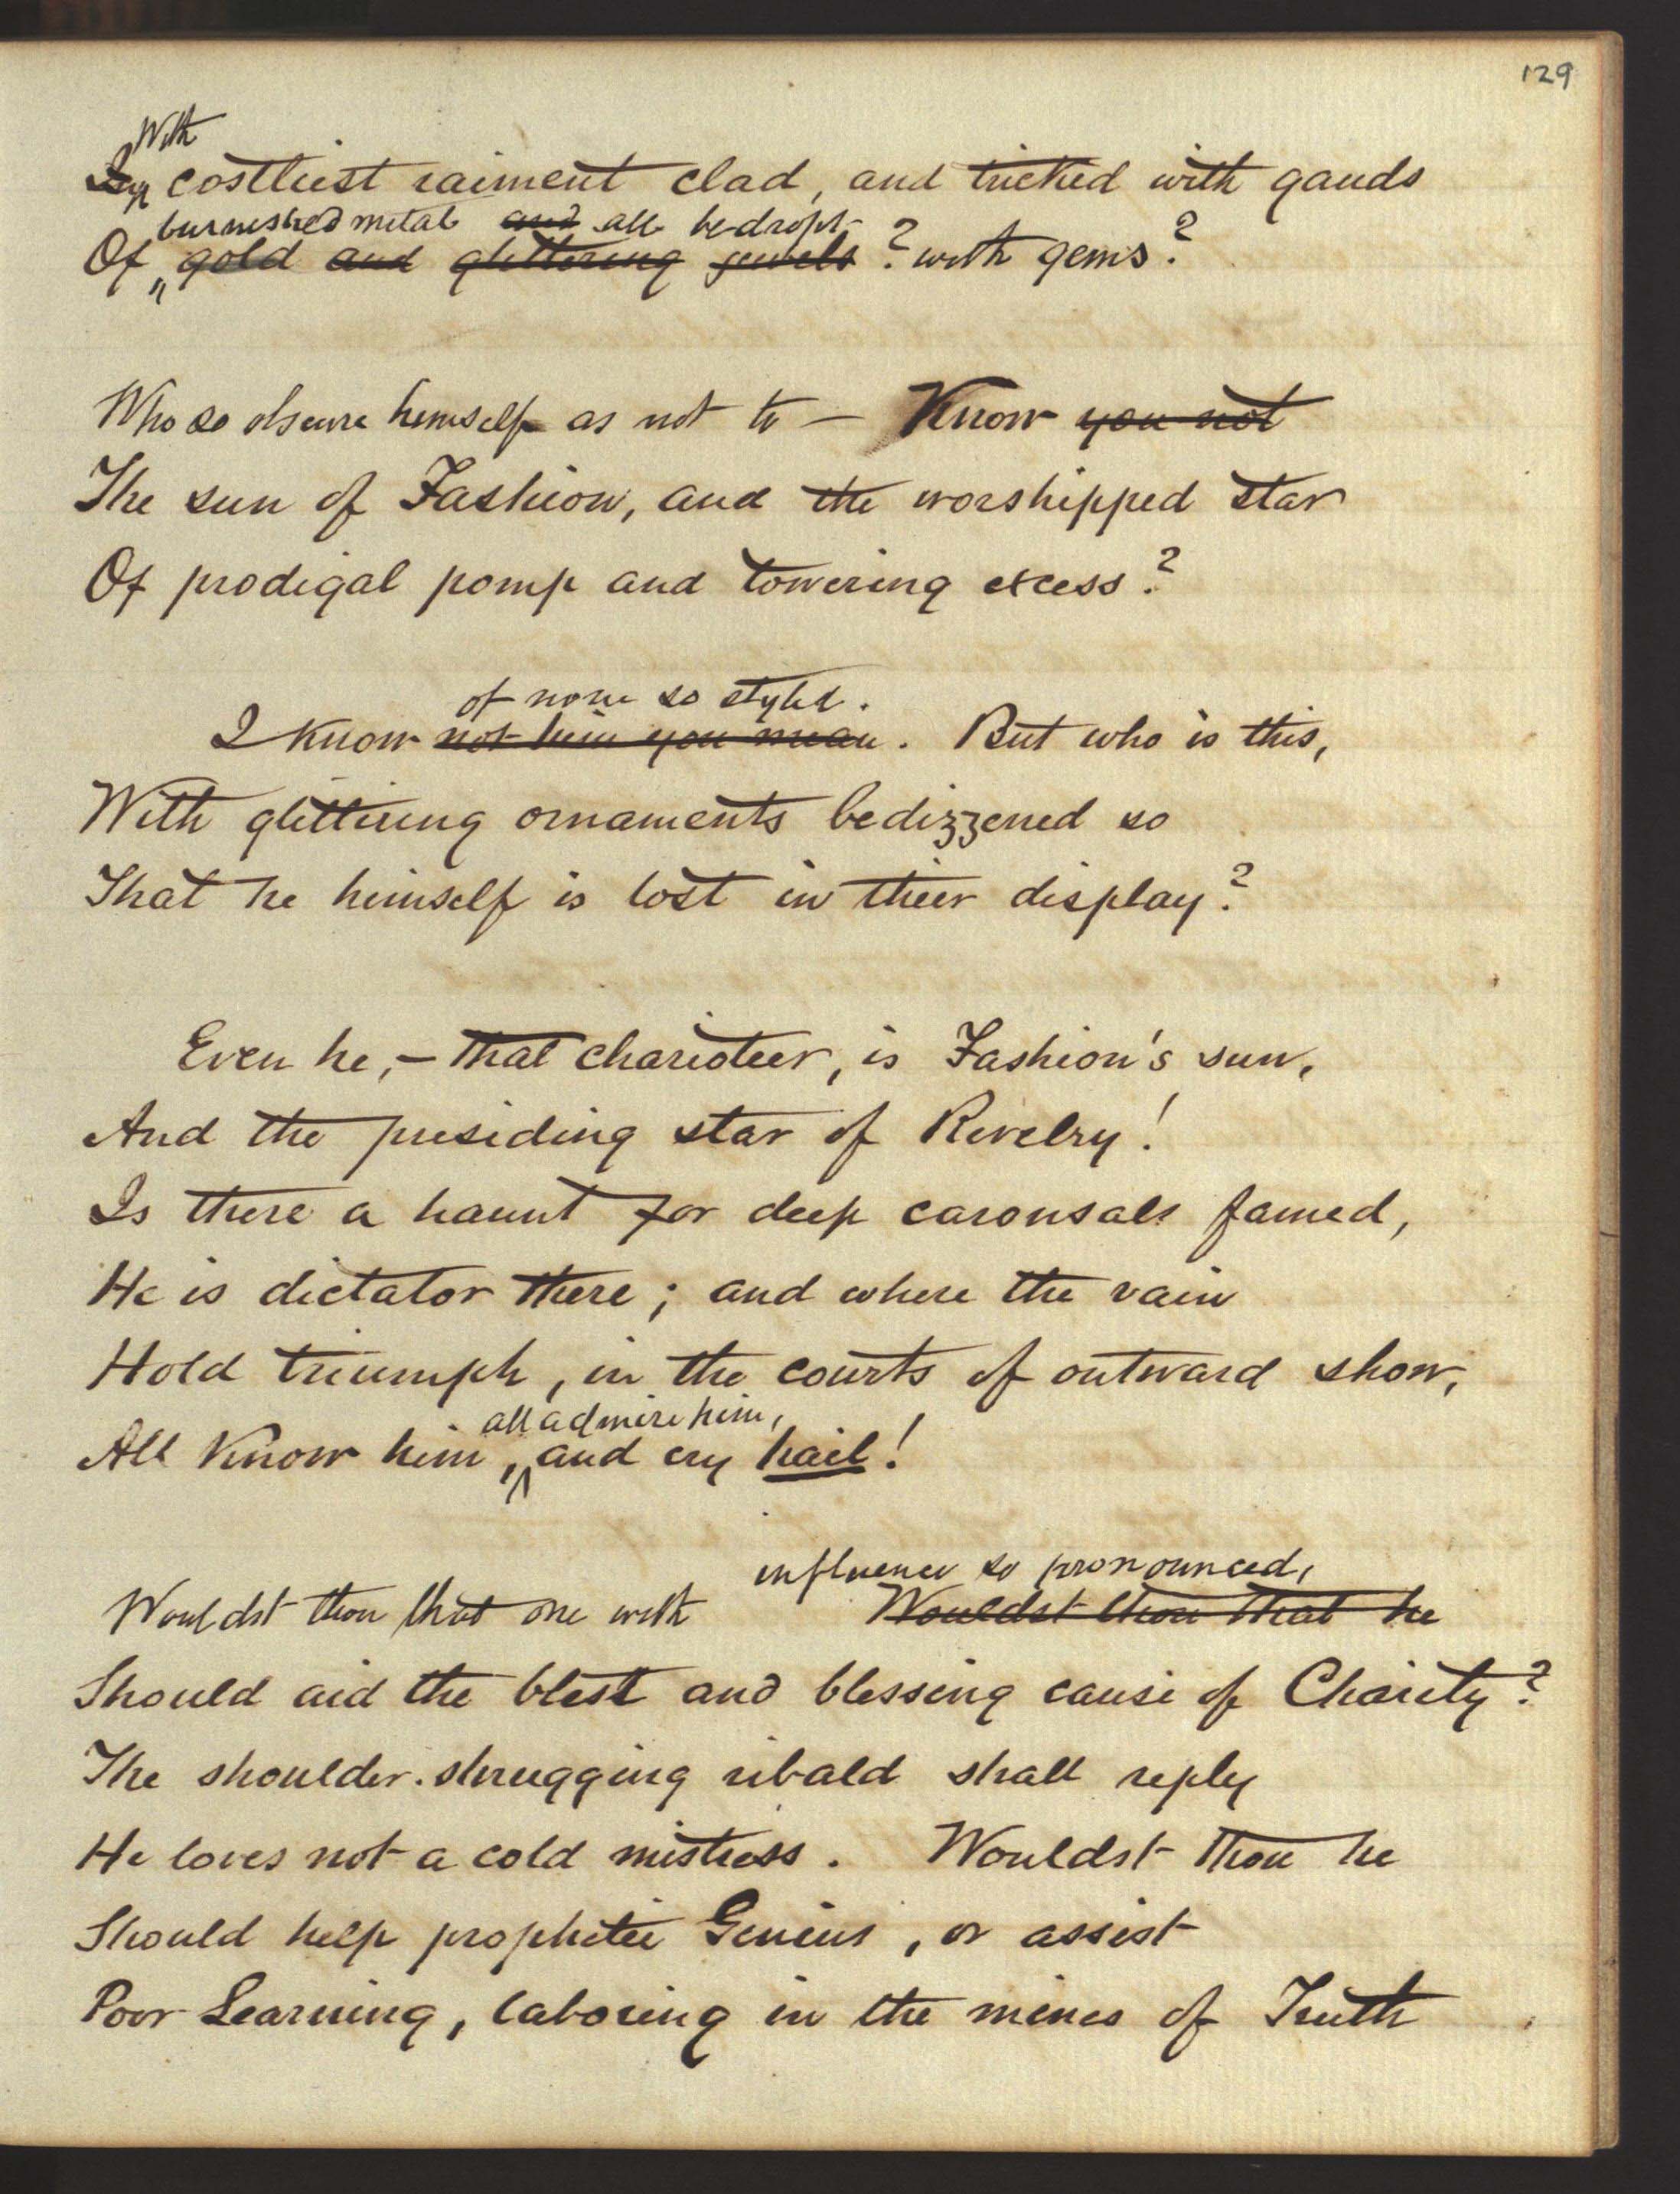 129
With
In costliest raiment clad, and tricked with gauds
burnished metal and all bedropt
Of gold and glittering jewels? with gems?
Who so obscure himself as not to — Know you not
The sun of Fashion, and the worshipped star
Of prodigal pomp and towering excess?
of none so styled.
I know not him you mean. But who is this,
With glittering ornaments bedizzened so
That he himself is lost in their display?
Even he, – that charioteer, is Fashion's sun,
And the presiding star of Revelry!
Is there a haunt for deep carousals famed,
He is dictator there; and where the vain
Hold triumph, in the courts of outward show,
all admire him,
All Know him, and cry hail!
influence so pronounced,
Wouldst thou that one with Wouldst thou that he
Should aid the blest and blessing cause of Charity?
The shoulder-shrugging ribald shall reply
He loves not a cold mistress. Wouldst thou he
Should help prophetic Genius, or assist
Poor Learning, laboring in the mines of Truth